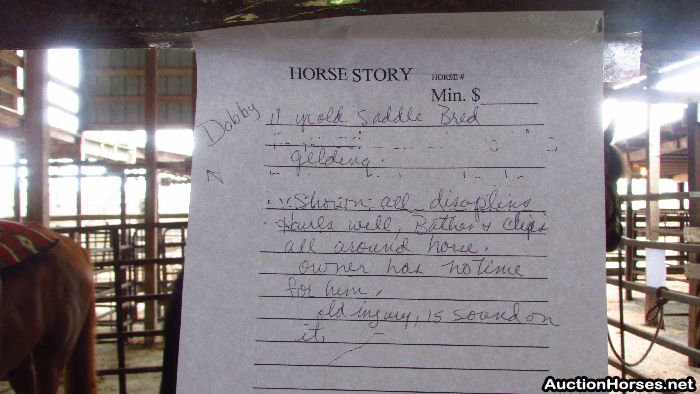 HORSE STORY HORSE #
Min. $
Dobby
11 yr old Saddle Bred
gelding.
Shown all disoplins
Hauls well, Bathes & clips
all around horse.
owner has no time
for him.
old injury, is sound on
it.
AuctionHorses.net